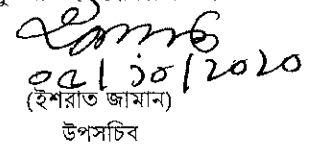 ০৫/১০/২০২০
(ইশরাত জামান)
উপসচিব